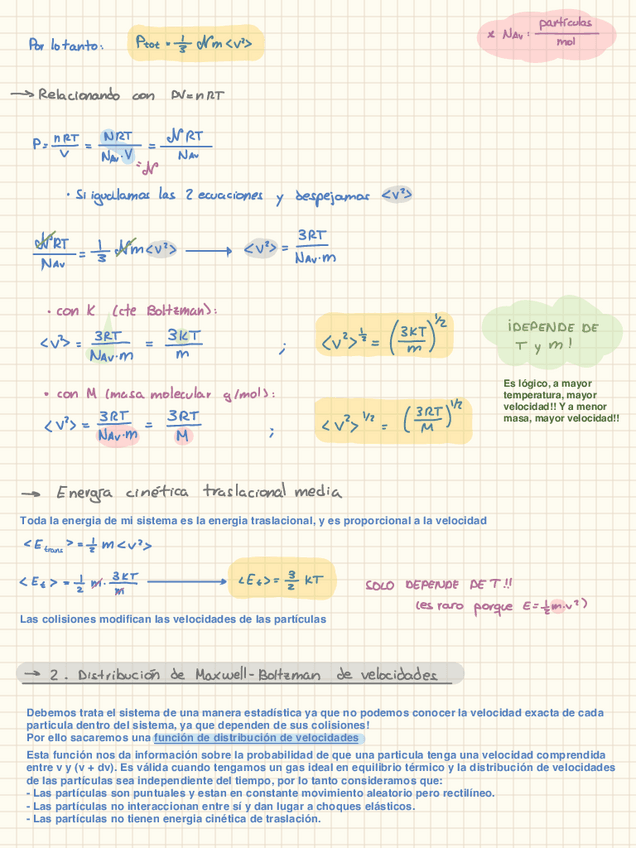 Por lo tanto: Ptot = 1/3 𝒩 m <v²>
* NAv: partículas/mol
→ Relacionando con PV = nRT
P = nRT/V = NRT/(NAv·V) = 𝒩RT/NAv
= 𝒩
· Si igualamos las 2 ecuaciones y despejamos <v²>
𝒩RT/NAv = 1/3 𝒩m<v²> → <v²> = 3RT/(NAv·m)
· con K (cte Boltzman):
<v²> = 3RT/(NAv·m) = 3KT/m ; <v²>^1/2 = (3KT/m)^1/2
¡DEPENDE DE
T y m!
Es lógico, a mayor
temperatura, mayor
velocidad!! Y a menor
masa, mayor velocidad!!
· con M (masa molecular g/mol):
<v²> = 3RT/(NAv·m) = 3RT/M ; <v²>^1/2 = (3RT/M)^1/2
→ Energía cinética traslacional media
Toda la energia de mi sistema es la energia traslacional, y es proporcional a la velocidad
<Etrans> = 1/2 m <v²>
<Et> = 1/2 m · 3KT/m → <Et> = 3/2 KT
SOLO DEPENDE DE T!!
(es raro porque E = 1/2 m·v²)
Las colisiones modifican las velocidades de las partículas
→ 2. Distribución de Maxwell-Boltzman de velocidades
Debemos trata el sistema de una manera estadística ya que no podemos conocer la velocidad exacta de cada
particula dentro del sistema, ya que dependen de sus colisiones!
Por ello sacaremos una función de distribución de velocidades
Esta función nos da información sobre la probabilidad de que una particula tenga una velocidad comprendida
entre v y (v + dv). Es válida cuando tengamos un gas ideal en equilibrio térmico y la distribución de velocidades
de las partículas sea independiente del tiempo, por lo tanto consideramos que:
- Las partículas son puntuales y estan en constante movimiento aleatorio pero rectilíneo.
- Las partículas no interaccionan entre sí y dan lugar a choques elásticos.
- Las partículas no tienen energia cinética de traslación.